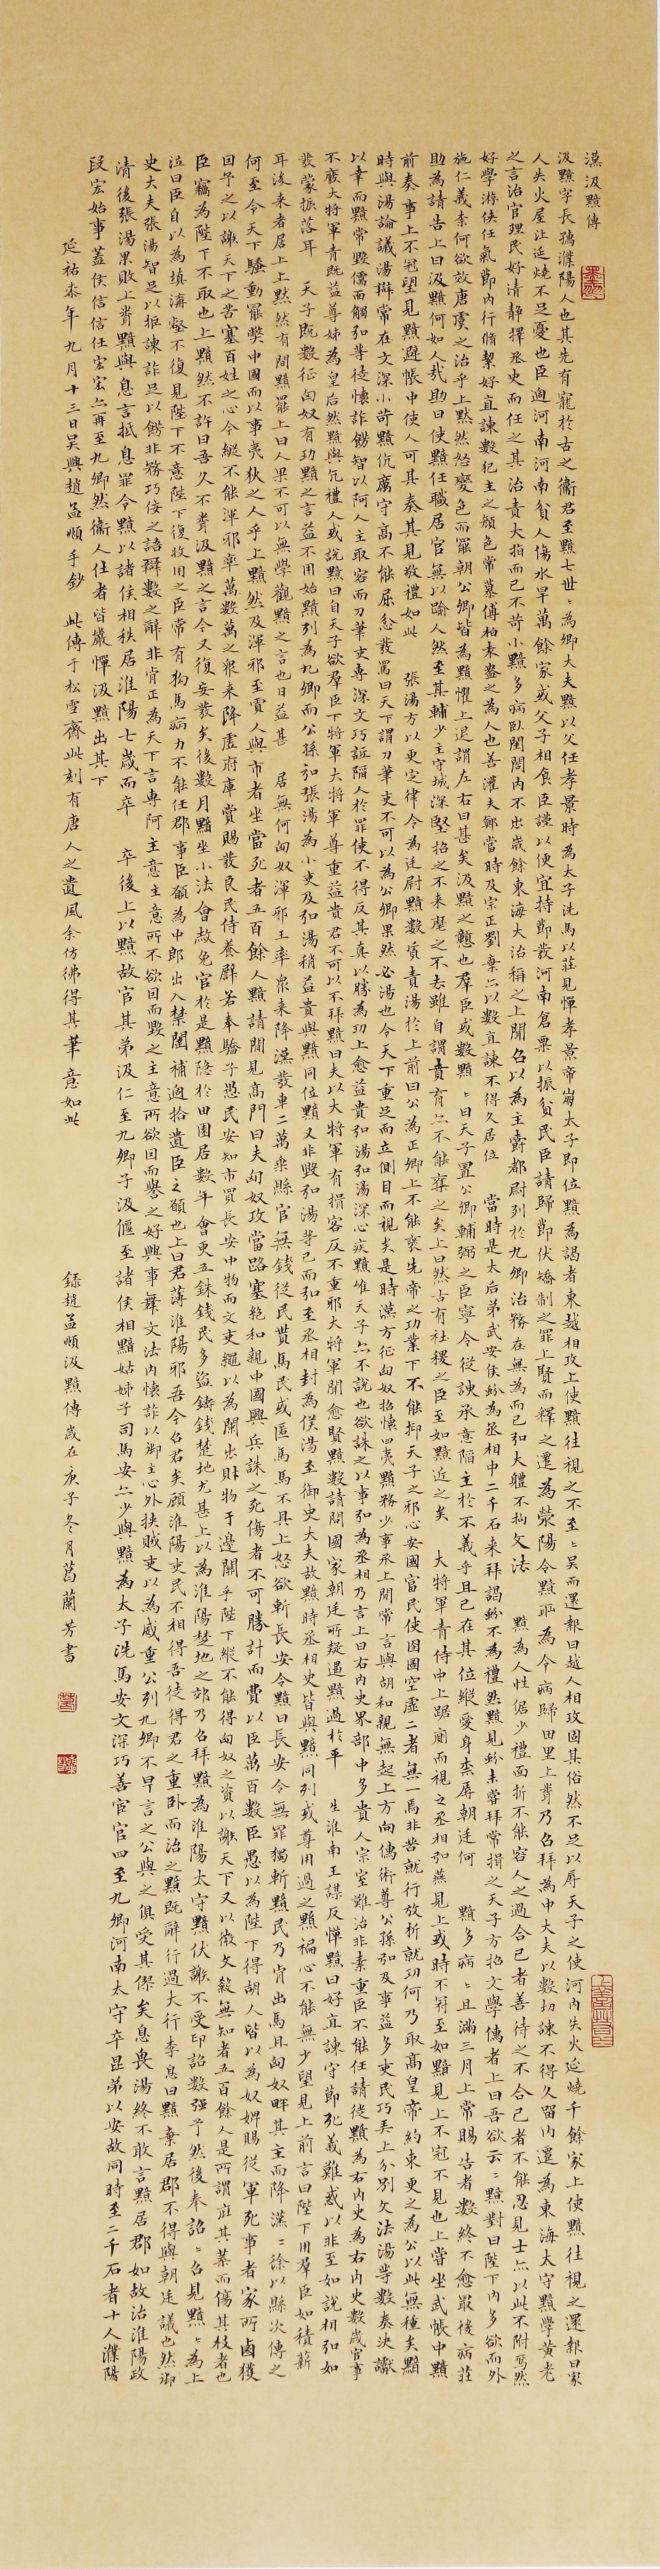 漢汲黯傳
汲黯字長孺濮陽人也其先有寵於古之衛君至黯七世〻為卿大夫黯以父任孝景時為太子洗馬以莊見憚孝景帝崩太子即位黯為謁者東越相攻上使黯往視之不至〻吳而還報曰越人相攻固其俗然不足以辱天子之使河內失火延燒千餘家上使黯往視之還報曰家
人失火屋比延燒不足憂也臣過河南河南貧人傷水旱萬餘家或父子相食臣謹以便宜持節發河南倉粟以振貧民臣請歸節伏矯制之罪上賢而釋之遷為滎陽令黯恥為令病歸田里上聞乃召拜為中大夫以數切諫不得久留內遷為東海太守黯學黃老
之言治官理民好清靜擇丞史而任之其治責大指而已不苛小黯多病臥閨閤內不出歲餘東海大治稱之上聞召以為主爵都尉列於九卿治務在無為而已弘大體不拘文法 黯為人性倨少禮面折不能容人之過合己者善待之不合己者不能忍見士亦以此不附焉然
好學游俠任氣節內行脩絜好直諫數犯主之顏色常慕傅柏袁盎之為人也善灌夫鄭當時及宗正劉棄亦以數直諫不得久居位 當時是太后弟武安侯蚡為丞相中二千石來拜謁蚡不為禮然黯見蚡未嘗拜常揖之天子方招文學儒者上曰吾欲云〻黯對曰陛下內多欲而外
施仁義柰何欲效唐虞之治乎上默然怒變色而罷朝公卿皆為黯懼上退謂左右曰甚矣汲黯之戇也羣臣或數黯〻曰天子置公卿輔弼之臣寧令從諛承意陷主於不義乎且已在其位縱愛身柰辱朝廷何 黯多病〻且滿三月上常賜告者數終不愈最後病莊
助為請告上曰汲黯何如人哉助曰使黯任職居官無以踰人然至其輔少主守城深堅招之不來麾之不去雖自謂賁育亦不能奪之矣上曰然古有社稷之臣至如黯近之矣 大將軍青侍中上踞廁而視之丞相弘燕見上或時不冠至如黯見上不冠不見也上嘗坐武帳中黯
前奏事上不冠望見黯避帳中使人可其奏其見敬禮如此 張湯方以更定律令為廷尉黯數質責湯於上前曰公為正卿上不能襃先帝之功業下不能抑天子之邪心安國富民使囹圄空虛二者無一焉非苦就行放析就功何乃取高皇帝約束更之為公以此無種矣黯
時與湯論議湯辯常在文深小苛黯伉厲守高不能屈忿發罵曰天下謂刀筆吏不可以為公卿果然必湯也令天下重足而立側目而視矣是時漢方征匈奴招懷四夷黯務少事承上閒常言與胡和親無起上方向儒術尊公孫弘及事益多吏民巧弄上分別文法湯等數奏決讞
以幸而黯常毀儒面觸弘等徒懷詐飾智以阿人主取容而刀筆吏專深文巧詆陷人於罪使不得反其真以勝為功上愈益貴弘湯弘湯深心疾黯唯天子亦不說也欲誅之以事弘為丞相乃言上曰右內史界部中多貴人宗室難治非素重臣不能任請徙黯為右內史為右內史數歲官事
不廢大將軍青既益尊姊為皇后然黯與亢禮人或說黯曰自天子欲群臣下大將軍大將軍尊重益貴君不可以不拜黯曰夫以大將軍有揖客反不重邪大將軍聞愈賢黯數請問國家朝廷所疑遇黯過於平 生淮南王謀反憚黯曰好直諫守節死義難惑以非至如說相弘如
發蒙振落耳 天子既數征匈奴有功黯之言益不用始黯列為九卿而公孫弘張湯為小吏及弘湯稍益貴與黯同位黯又非毀弘湯等已而弘至丞相封為侯湯至御史大夫故黯時丞相史皆與黯同列或尊用過之黯褊心不能無少望見上前言曰陛下用羣臣如積薪
耳後來者居上上默然有間黯罷上曰人果不可以無學觀黯之言也日益甚 居無何匈奴渾邪王率衆來降漢發車二萬乘縣官無錢從民貰馬民或匿馬馬不具上怒欲斬長安令黯曰長安令無罪獨斬黯民乃肯出馬且匈奴畔其主而降漢〻徐以縣次傳之
何至令天下騷動罷弊中國而以事夷狄之人乎上默然及渾邪至賈人與市者坐當死者五百餘人黯請間見高門曰夫匈奴攻當路塞絕和親中國興兵誅之死傷者不可勝計而費以臣萬百數臣愚以為陛下得胡人皆以為奴婢賜從軍死事者家所鹵獲
因予之以謝天下之苦塞百姓之心今縱不能渾邪率萬數萬之衆來降虛府庫賞賜發良民侍養辟若奉驕子愚民安知市買長安中物而文吏繩以為闌出財物于邊關乎陛下縱不能得匈奴之資以謝天下又以微文殺無知者五百餘人是所謂庇其葉而傷其枝者也
臣竊為陛下不取也上默然不許曰吾久不聞汲黯之言今又復妄發矣後數月黯坐小法會赦免官於是黯隱於田園居數年會更五銖錢民多盜鑄錢楚地尤甚上以為淮陽楚地之郊乃召拜黯為淮陽太守黯伏謝不受印詔數強予然後奉詔〻召見黯〻為上
泣曰臣自以為填溝壑不復見陛下不意陛下復收用之臣常有狗馬病力不能任郡事臣願為中郎出入禁闥補過拾遺臣之願也上曰君薄淮陽邪吾今召君矣顧淮陽吏民不相得吾徒得君之重臥而治之黯既辭行過大行李息曰黯棄居郡不得與朝廷議也然御
史大夫張湯智足以拒諫詐足以飾非務巧佞之語辯數之辭非肯正為天下言專阿主意主意所不欲因而毀之主意所欲因而譽之好興事舞文法內懷詐以御主心外挾賊吏以為威重公列九卿不早言之公與之俱受其僇矣息畏湯終不敢言黯居郡如故治淮陽政
清後張湯果敗上聞黯與息言抵息罪令黯以諸侯相秩居淮陽七歲而卒 卒後上以黯故官其弟汲仁至九卿子汲偃至諸侯相黯姑姊子司馬安亦少與黯為太子洗馬安文深巧善宦官四至九卿河南太守卒昆弟以安故同時至二千石者十人濮陽
段宏始事蓋侯信信任宏宏亦再至九卿然衛人仕者皆嚴憚汲黯出其下
延祐柒年九月十三日吳興趙孟頫手鈔 此傳于松雪齋此刻有唐人之遺風余仿彿得其筆意如此
錄趙孟頫汲黯傳歲在庚子冬月葛蘭芳書